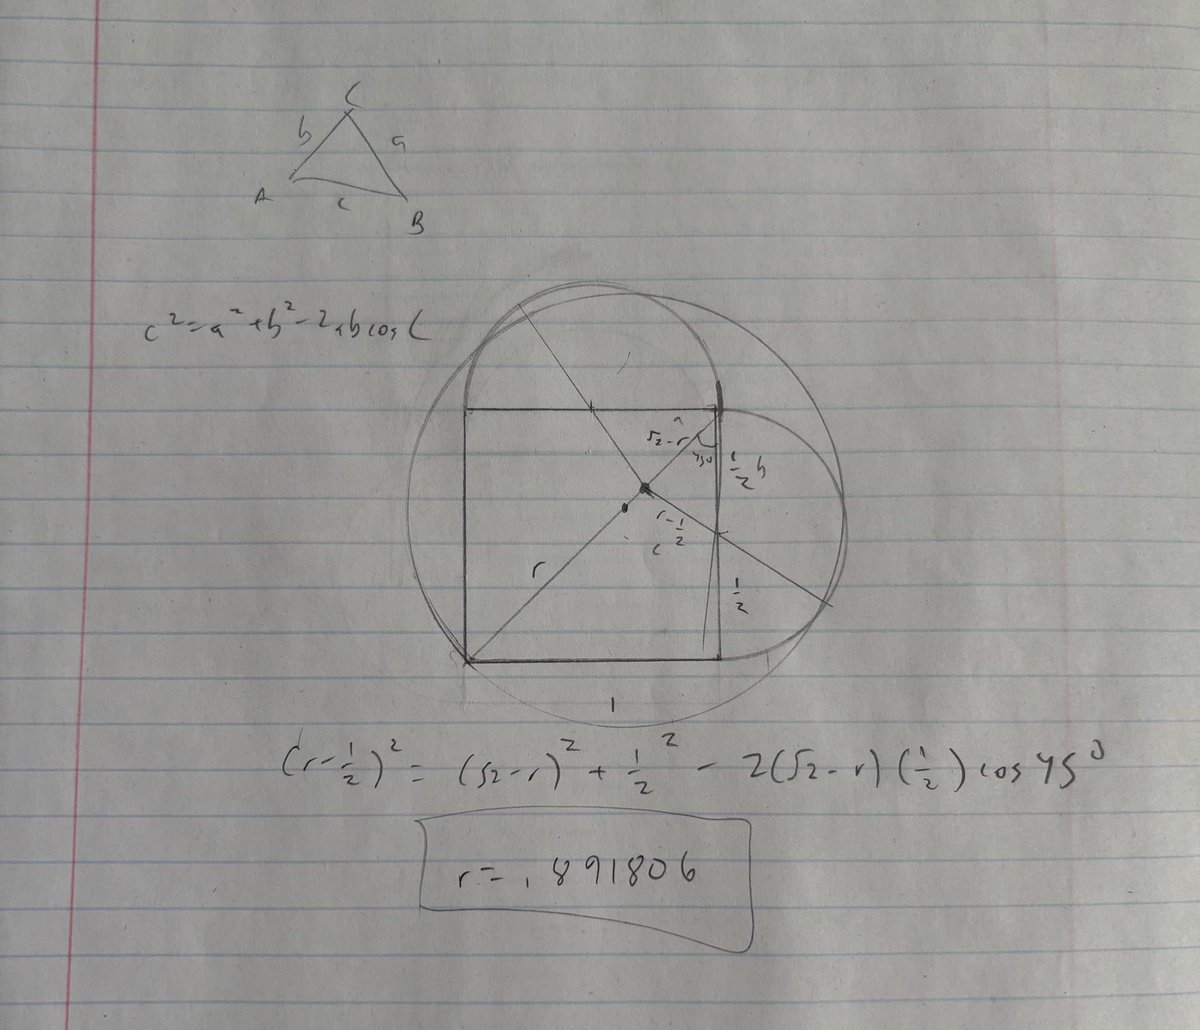 C
b a
A c B
c² = a² + b² - 2ab cos C
√2 - r
45° 1/2 b
r - 1/2
c
r 1/2
1
(r - 1/2)² = (√2 - r)² + 1/2² - 2(√2 - r)(1/2) cos 45°
r = .891806